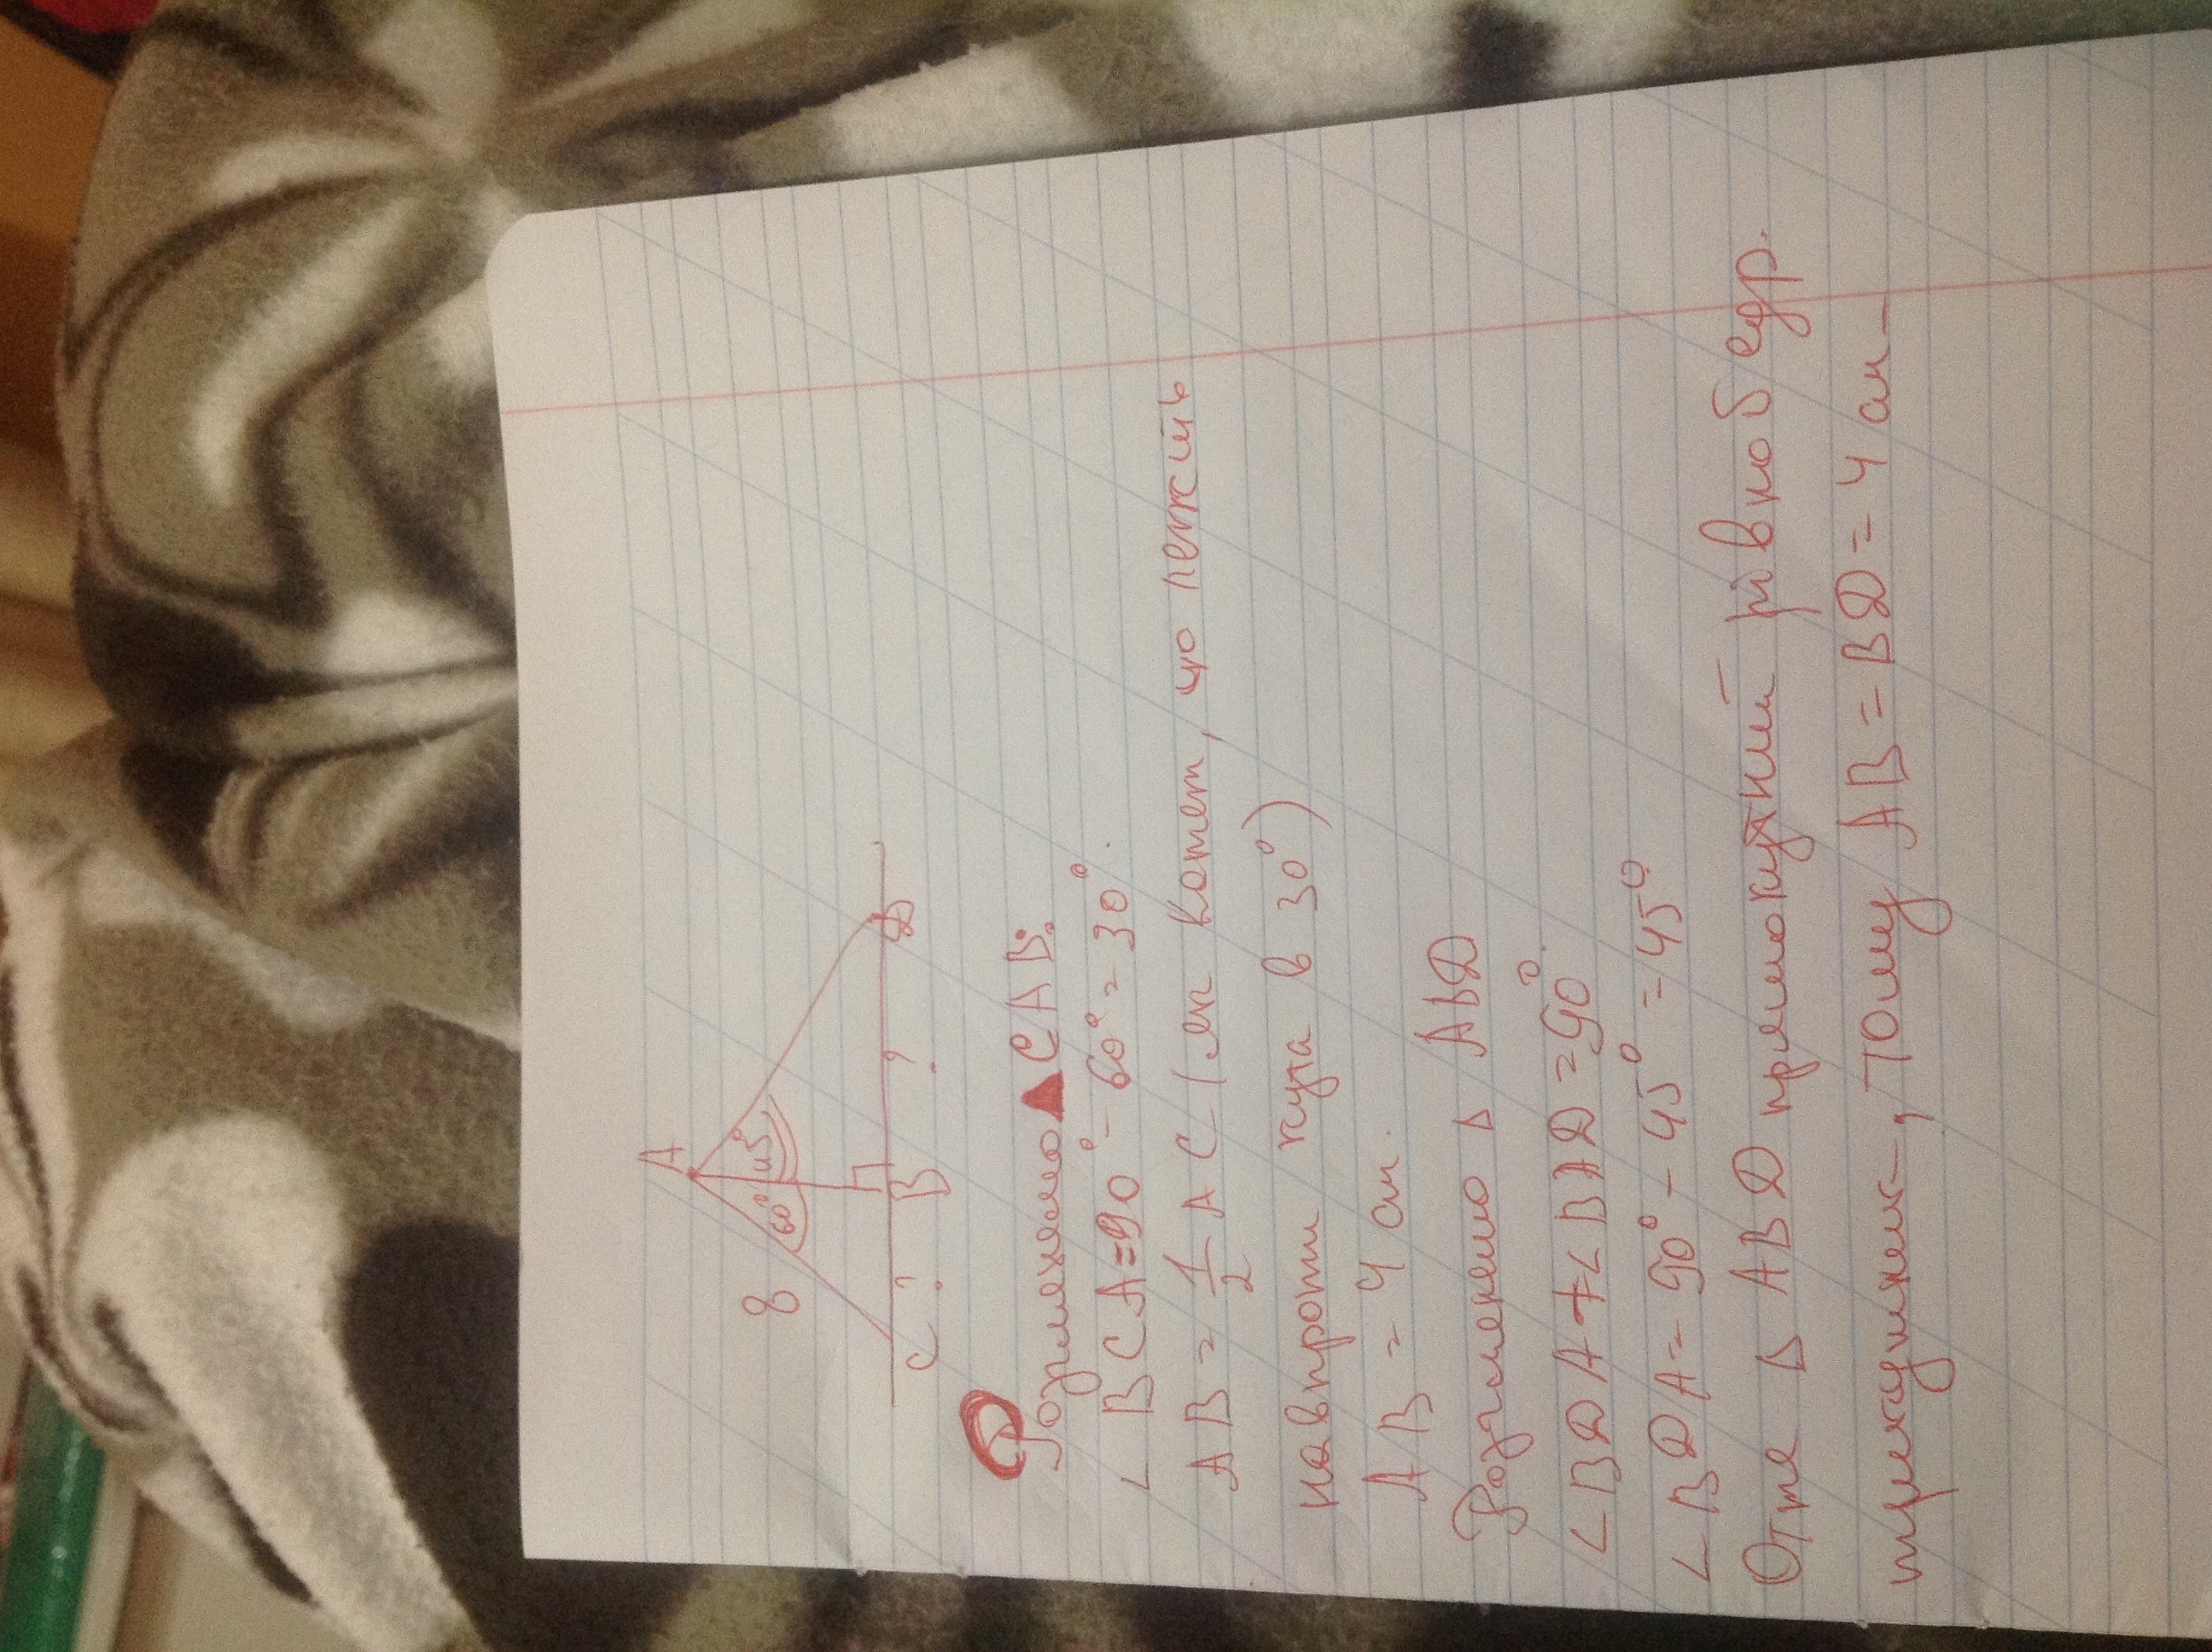 A
8
60° 45°
C ? B ? D
Розглянемо ▲ CAB:
∠BCA=90°-60°=30°.
AB = 1/2 AC (як катет, що лежить
навпроти кута в 30°)
AB = 4 см.
Розглянемо Δ ABD
∠BDA+∠BAD=90°.
∠BDA=90°-45°=45°
Отже Δ ABD прямокутний рівнобедр.
трикутник, тому AB=BD=4 см